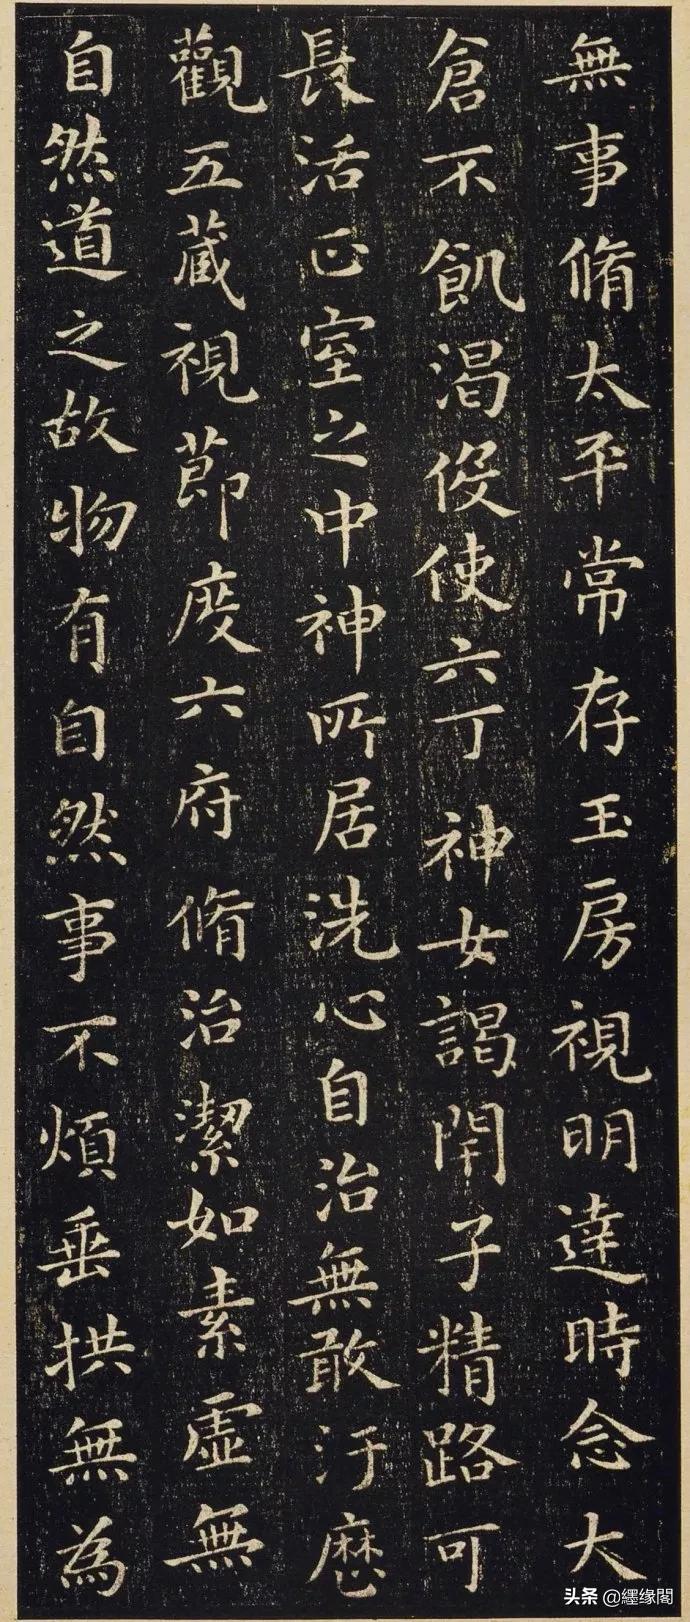 無事脩太平常存玉房視明達時念大
倉不飢渴伇使六丁神女謁閇子精路可
長活正室之中神所居洗心自治無敢汙歷
觀五藏視節度六府脩治潔如素虛無
自然道之故物有自然事不煩垂拱無為
头条@纆缘閣